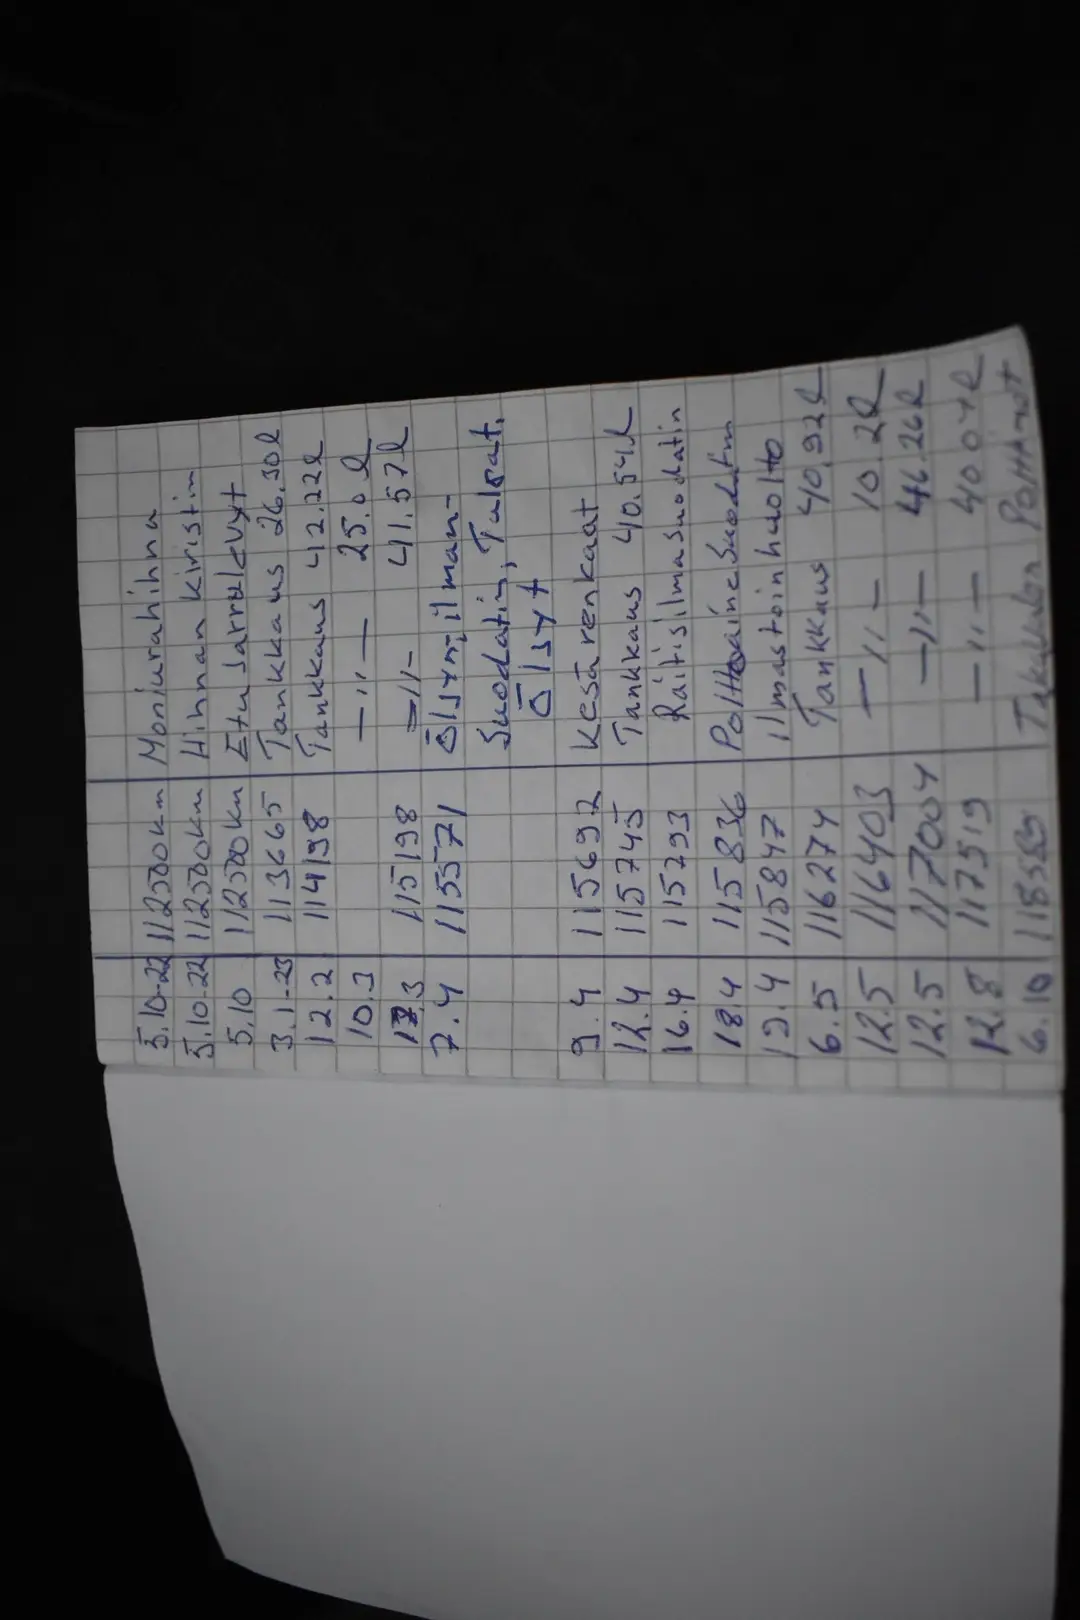 5.10-22 112500km Moniurahihna
5.10-22 112500km Hihnan kiristin
5.10 112500km Etu Jarrulevyt
3.1-23 113665 Tankkaus 26.30l
12.2 114198 Tankkaus 42.22l
10.3 —〃— 25.0l
17.3 115198 =〃- 41.57l
7.4 115571 Öljyn, ilman-
Suodatin, Tulpat,
Öljyt
9.4 115692 Kesärenkaat
12.4 115745 Tankkaus 40.54l
16.4 115793 Raitisilmasuodatin
18.4 115836
19.4 115847 Ilmastoinhuolto
6.5 116274 Tankkaus 40.92l
12.5 116403 —〃— 10.2l
12.5 117004 —〃— 46.26l
12.8 117519 —〃— 40.07l
6.10 Takavalon Polttimot